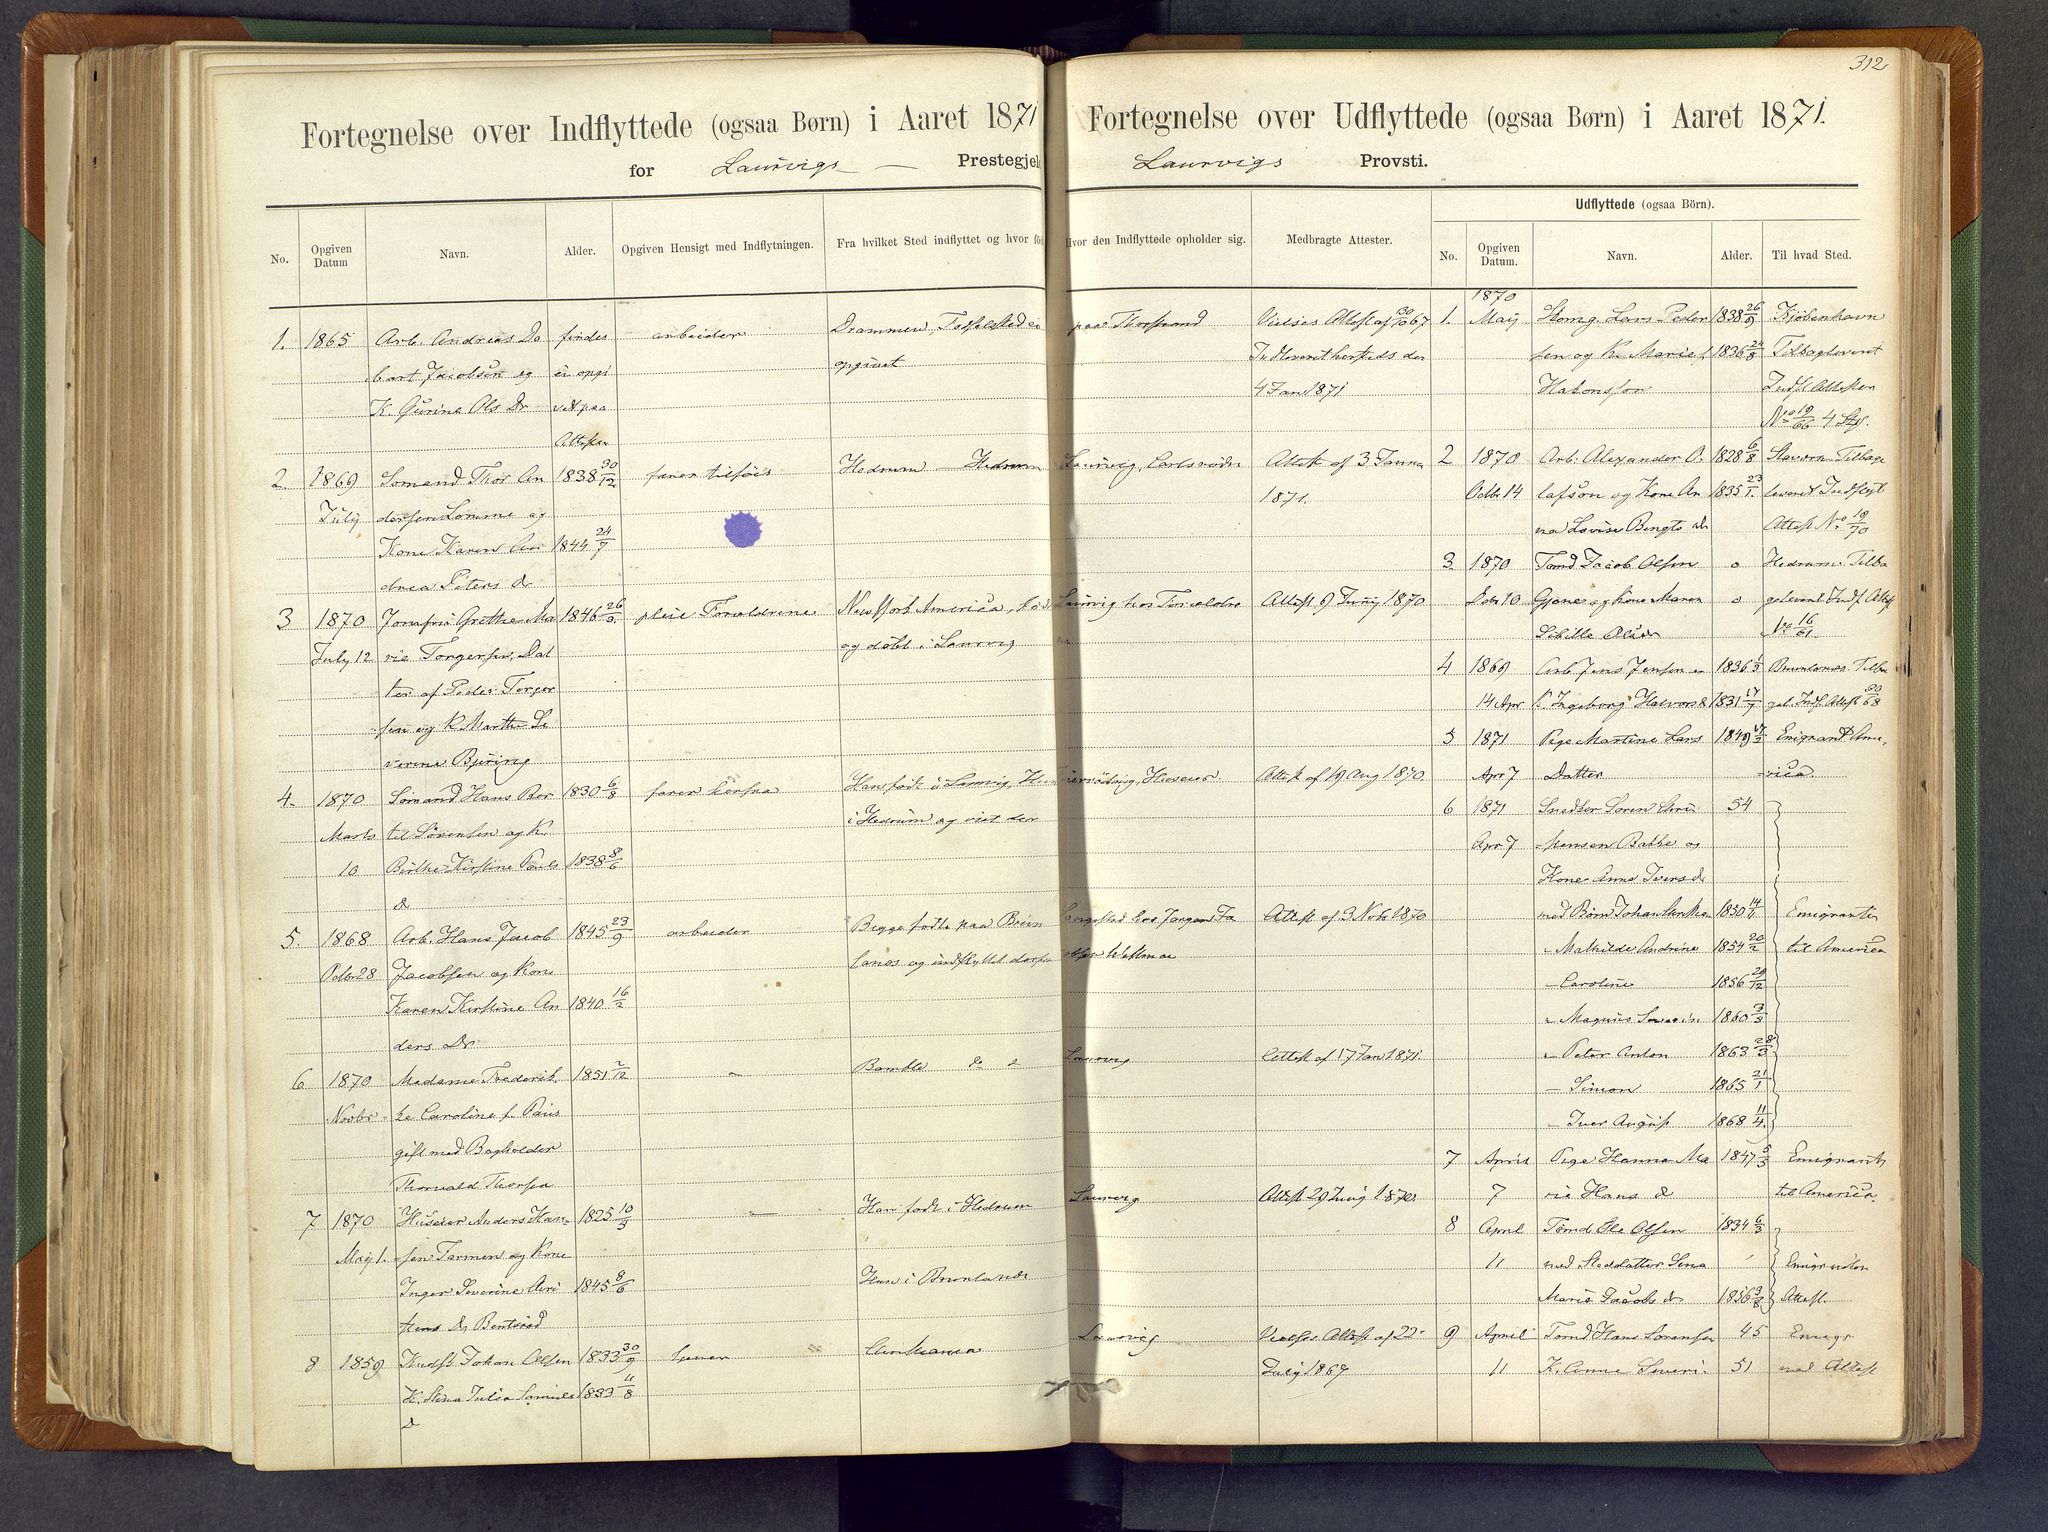 312
Fortegnelse over Indflyttede (ogsaa Børn) i Aaret 1871
for Laurvigs — Prestegjel
Fortegnelse over Udflyttede (ogsaa Børn) i Aaret 1871.
Laurvigs Provsti.
No. Opgiven Datum Navn. Alder. Opgiven Hensigt med Indflytningen. Fra hvilket Sted indflyttet og hvor fø
Hvor den Indflyttede opholder sig. Medbragte Attester.
1. 1865 Arb. Andreas Do findes arbeider Drammen, Fødselsted ei paa Thorstrand Vielses Attest af 30/10 67
bart Jacobsen og ei opgi opgivet Indleveret herteds den
K. Gurine Ols Dr vet paa 4 Jan 1871
Attesten
2. 1869 Sømand Thor An 1838 30/12 farer tilsøes Hedrum — Hedrum Laurvig, Attest af 3 Janua
July dersen Lømme og 1871.
Kone Karen An 1844 24/7
drea Peters d
3 1870 Jomfru Grethe Ma 1846 26/3 pleie Forældrene New York America, fød Laurvig hos Foreldre Attest 9 Juny 1870
July 12 rie Torgersen, Dat og døbt i Laurvig ne
ter af Peder Torger
sen og K. Marthe Se
verine Bjøring
4. 1870 Sømand Hans Ber 1830 6/8 farer herfra Han født i Laurvig, Hun Attest af 19 Aug 1870
Marts til Sørensen og K. i Hedrum og viet der
10 Birthe Kirstine Pauls 1838 8/6
d
5. 1868 Arb. Hans Jacob 1845 23/9 arbeider Begge fødte paa Brun Langestad hos Jørgen Ja Attest af 3 Novb 1870
Octbr 28 Jacobsen og Kone lanes og indflyttet derfra
Karen Kirstine An 1840 16/2
ders Dr
6 1870 Madame Frederik 1851 2/12 — Bamble do Laurvig Attest af 17 Jan 1871.
Novbr ke Caroline f. Paus
gift med Bogholder
Thorvald Thorsen
7 1870 Huseier Anders Han- 1825 10/3 — Han født i Hedrum Laurvig Attest 29 Juny 1870
May 1. sen Farmen og Kone
Inger Severine Chri 1845 8/6 Hun i Brunlanæs
stens d, Benterød
8 1859 Johan Olsen 1833 30/9 Christiania Laurvig Vielses Attest af 22
K. Stina Julia Samuels 1833 11/8 July 1867
d
Udflyttede (ogsaa Börn).
No. Opgiven Datum. Navn. Alder. Til hvad Sted.
1870
1. May Lars Peder 1838 26/9 Kjøbenhavn
sen og K. Marie f. 1836 24/8 Tilbageleveret
Hakonsson Indfl. Attesten
No 19/66 4 Sty.
2 1870 Arb. Alexander O. 1828 6/8 Stavern Tilbage
Octbr 14 lafson og Kone An 1835 23/1. leveret Indflyt
na Lovise Bengts d Attest No 18/70
3. 1870 Tømd Jacob Olsen o Hedrum Tilba
Octbr 10 Gjønes og Kone Maren o geleveret Indf. Attest
Sibille Olsdr No 16/61
4 1869 Arb. Jens Jensen 1836 1/3 Brunlanæs Tilba
14 Apr K. Ingeborg Halvorsd 1831 17/7 gel. Indf. Attest 20/68
5 1871 Pige Martine Lars 1849 17/2 Emigrant Ame
Apr 7 Datter rica.
6 1871 Snedker Søren Chri 54
Apr 7 stensen Bakke og
Kone Anne Ivers d
med Børn Johan 1850 14/7 Emigranter
- Mathilde Andrine 1854 20/2 til America
- Caroline 1856 29/12
- Magnus Severin 1860 3/3
- Peter Anton 1863 28/3
- Simon 1865 21/1
- Iver August 1868 11/4.
7 April Pige Hanne Ma 1847 5/3 Emigrant
7 rie Hans d til America.
8 April Tømd Ole Olsen 1834 6/3
11 med Steddatter Lena Emigr uden
Marie Jacobs d 1856 3/8 Attest.
9 April Tømd Hans Sørensen 45 Emigr
11 K. Anne Severi. 51 med Attest